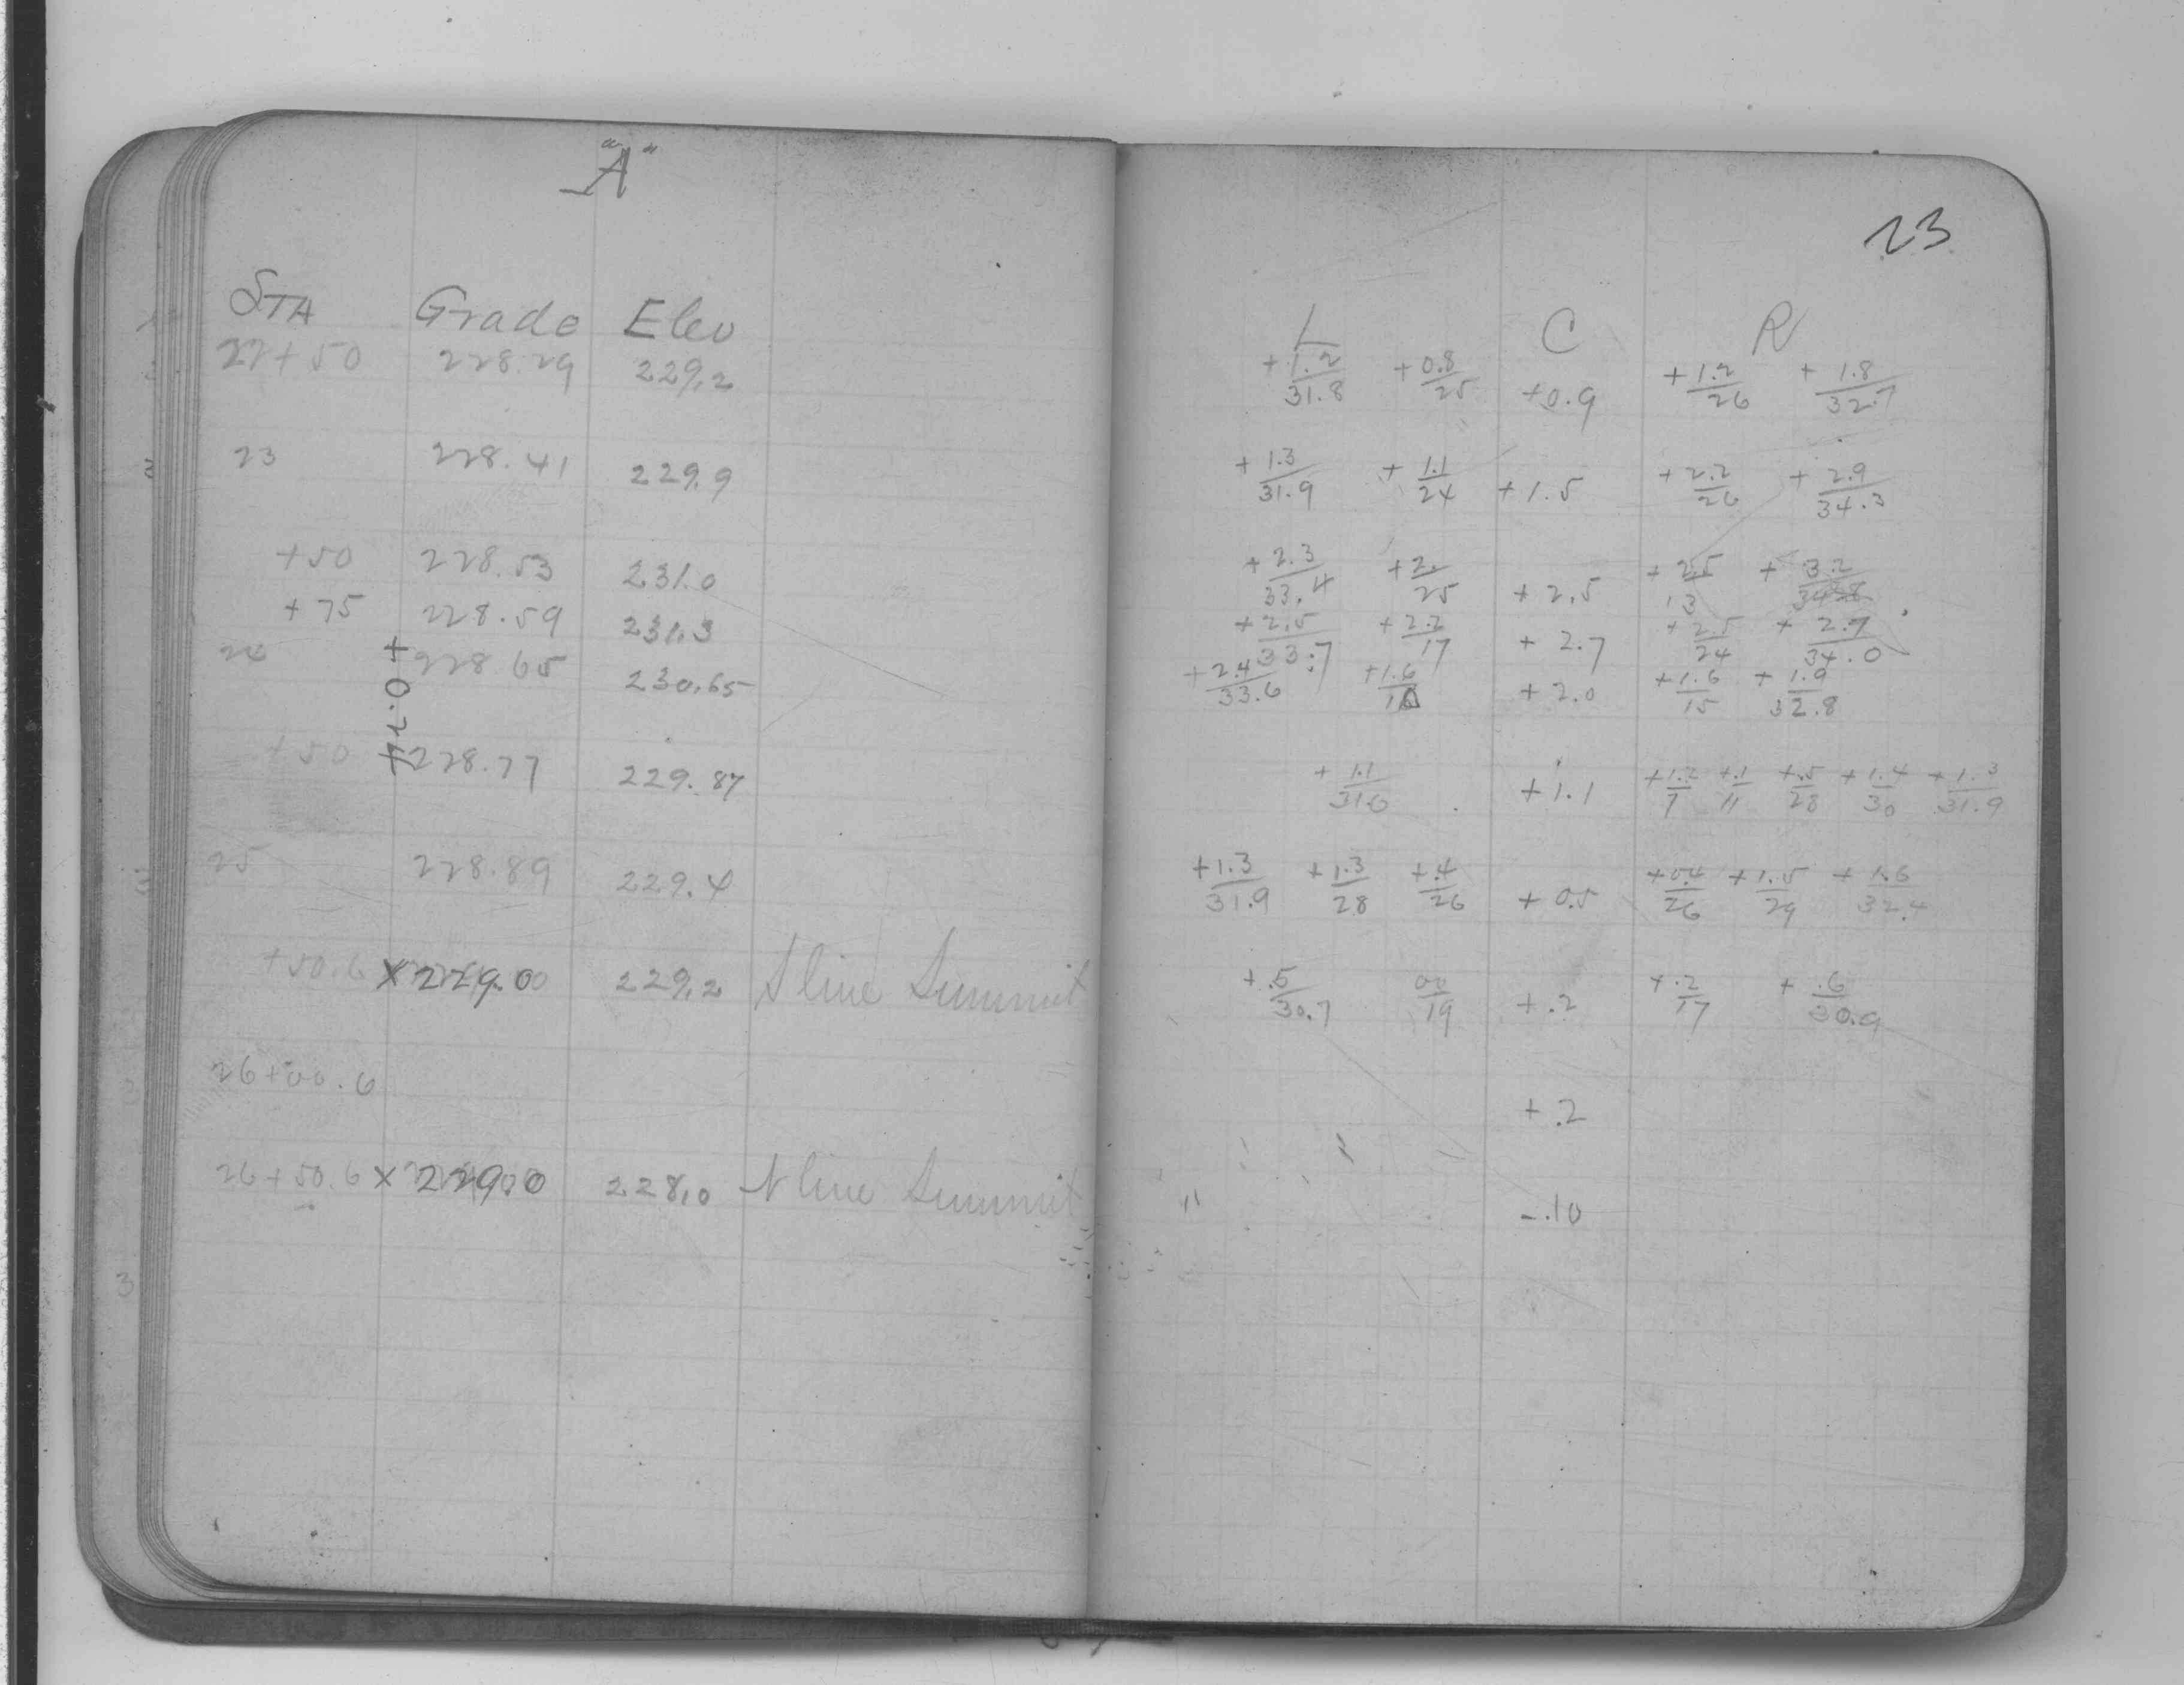 "A"
STA Grade Elev
22+50 228.29 229.2
23 228.41 229.9
+50 228.53 231.0
+75 228.59 231.3
24 228.65 230.65
+50 228.77 229.87
25 228.89 229.4
+50.6 x 229.00 229.2 S line Summit
26+00.6
26+50.6 x 229.00 228.0 N line Summit
23
L C R
+1.2/31.8 +0.8/25 +0.9 +1.2/26 +1.8/32.7
+1.3/31.9 +1.1/24 +1.5 +2.2/26 +2.9/34.3
+2.3/33.4 +2./25 +2.5 +2.5/13 +3.2/
+2.5/33.7 +2.2/17 +2.7 +2.5/24 +2.7/34.0
+2.4/33.6 +1.6/ +2.0 +1.6/15 +1.9/32.8
+1.1/31.6 +1.1 +1.2/7 +.1/11 +.5/28 +1.4/30 +1.3/31.9
+1.3/31.9 +1.3/28 +.4/26 +0.5 +0.4/26 +1.5/29 +1.6/32.4
+.5/30.7 00/19 +.2 +.2/17 +.6/30.9
+.2
" -.10